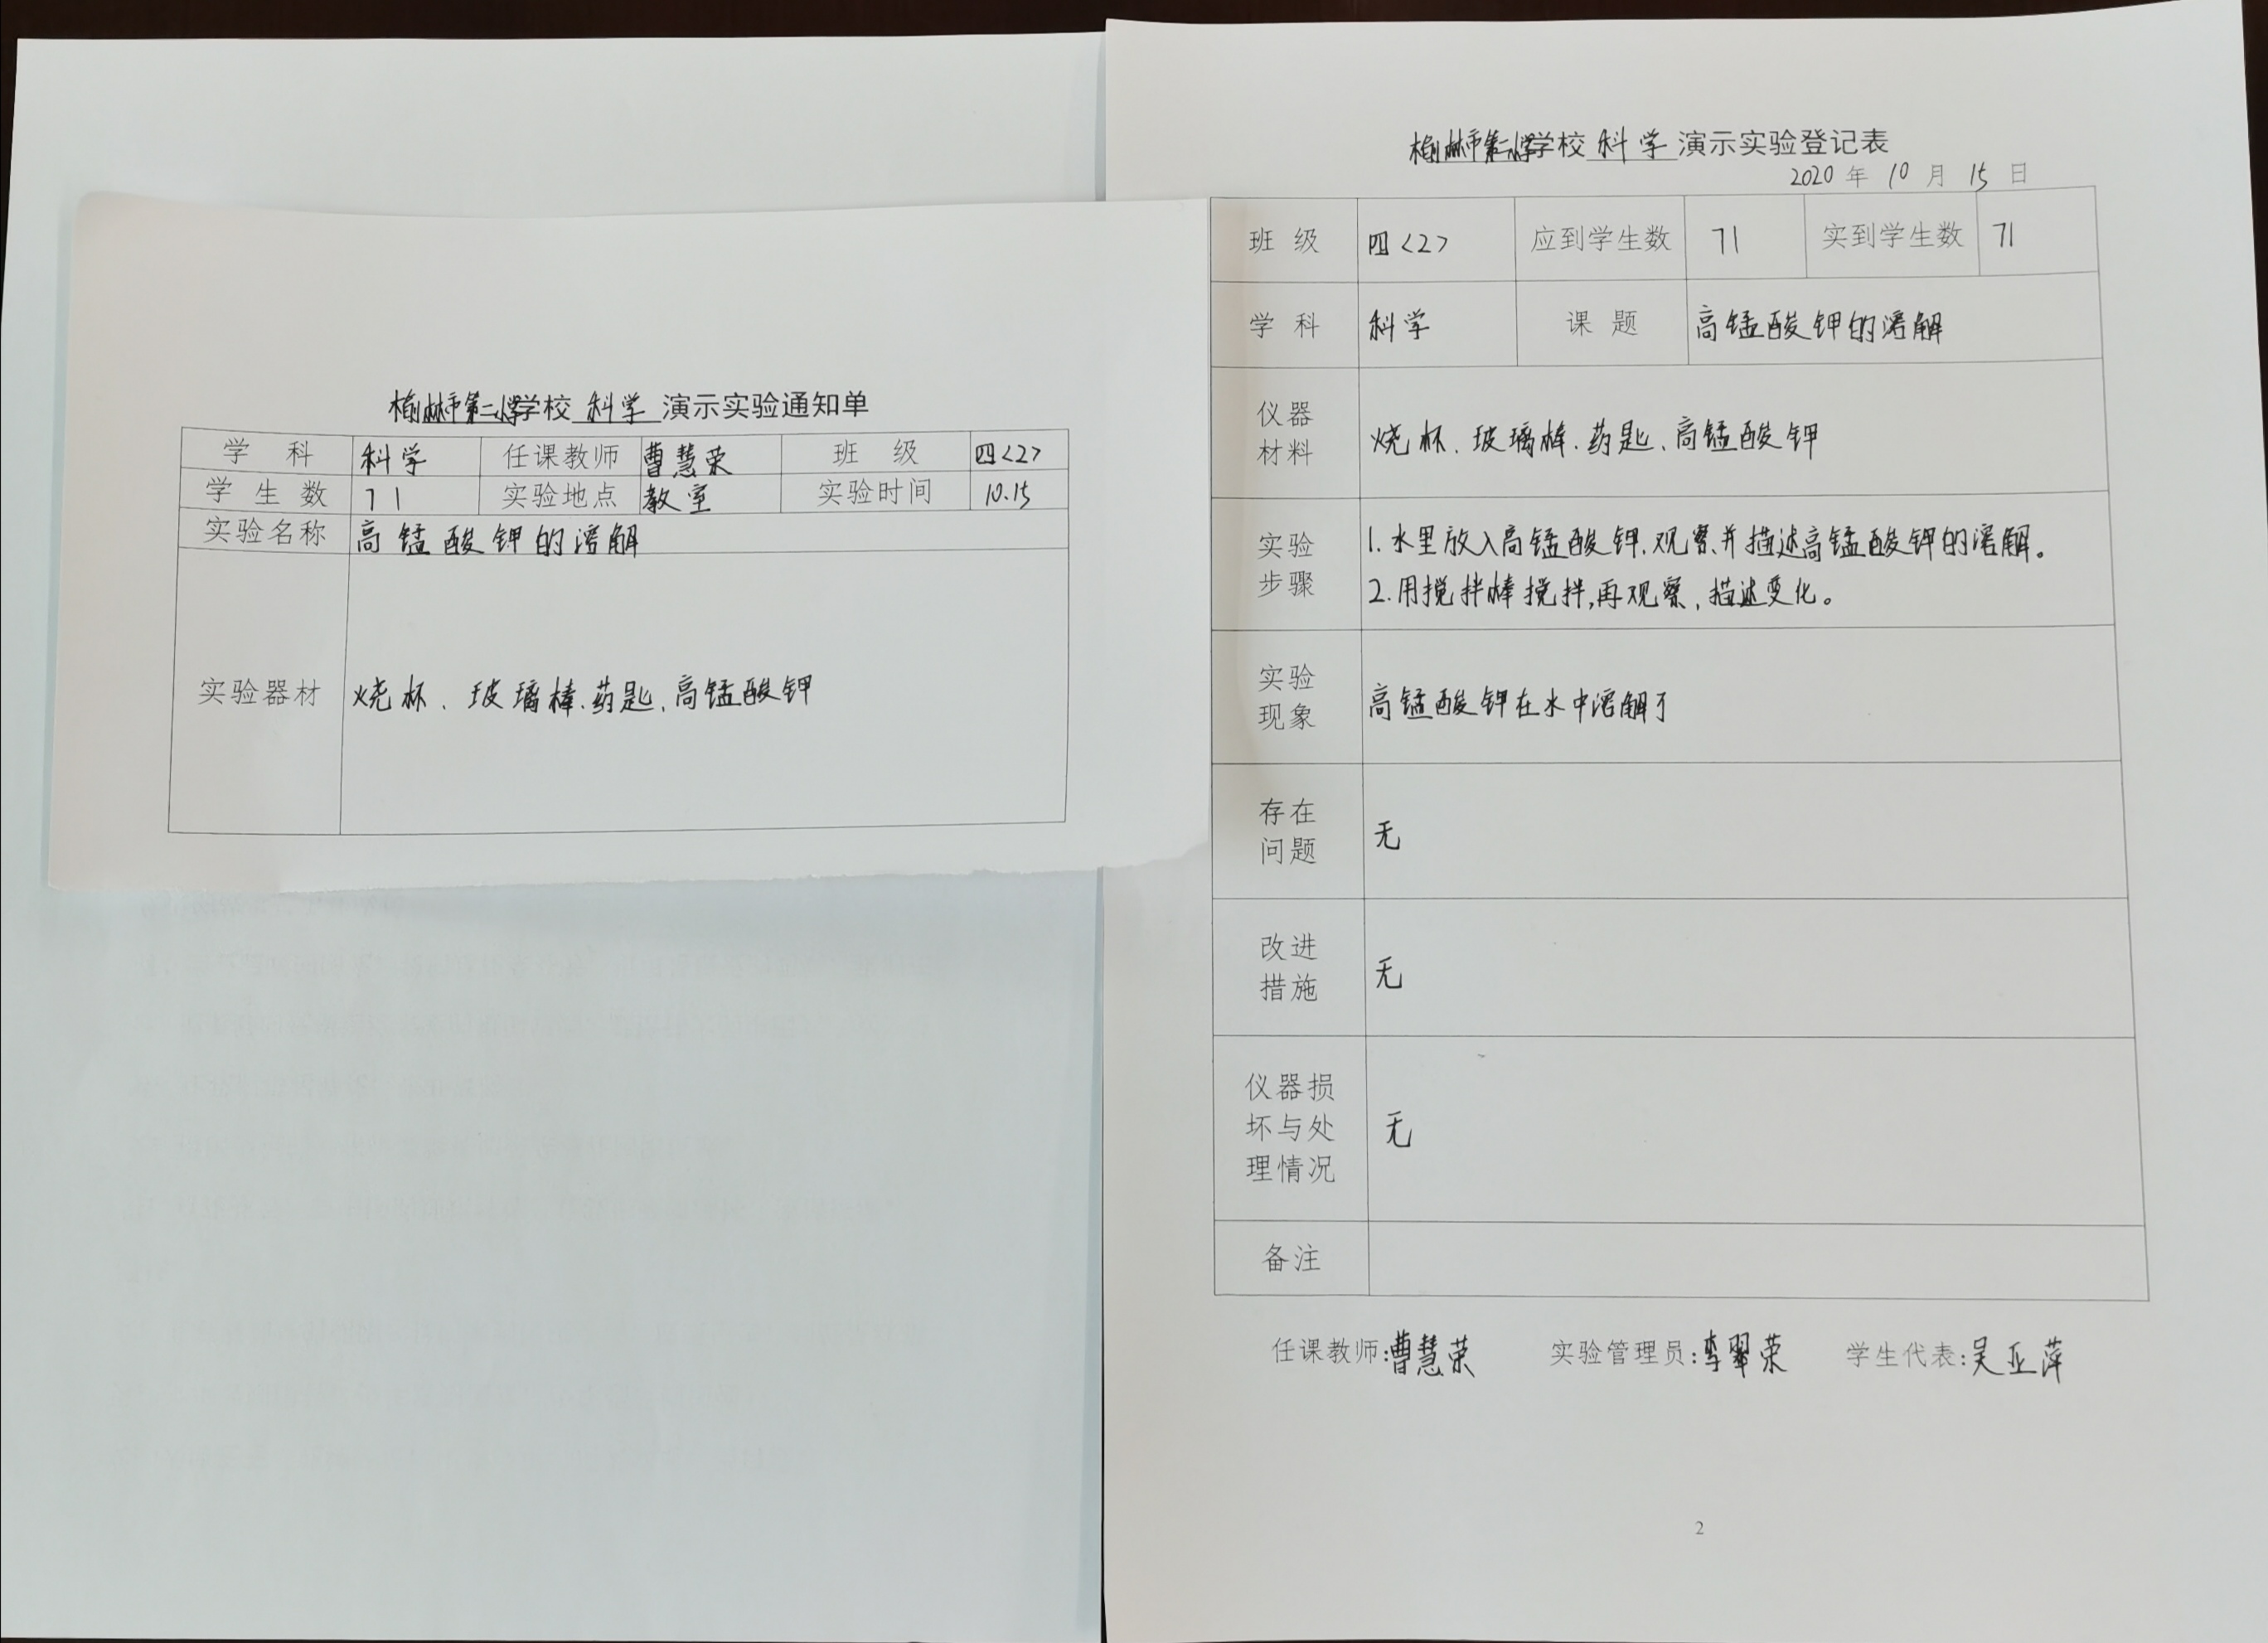 榆林市第二小学学校 科学 演示实验通知单
学 科 科学 任课教师 曹慧荣 班 级 四<2>
学 生 数 71 实验地点 教室 实验时间 10.15
实验名称 高锰酸钾的溶解
实验器材 烧杯、玻璃棒、药匙、高锰酸钾
榆林市第二小学学校 科学 演示实验登记表
2020 年 10 月 15 日
班 级 四<2> 应到学生数 71 实到学生数 71
学 科 科学 课 题 高锰酸钾的溶解
仪器
材料
烧杯、玻璃棒、药匙、高锰酸钾
实验
步骤
1. 水里放入高锰酸钾,观察并描述高锰酸钾的溶解。
2. 用搅拌棒搅拌,再观察,描述变化。
实验
现象
高锰酸钾在水中溶解了
存在
问题
无
改进
措施
无
仪器损
坏与处
理情况
无
备注
任课教师:曹慧荣 实验管理员:李翠荣 学生代表:吴亚萍
2